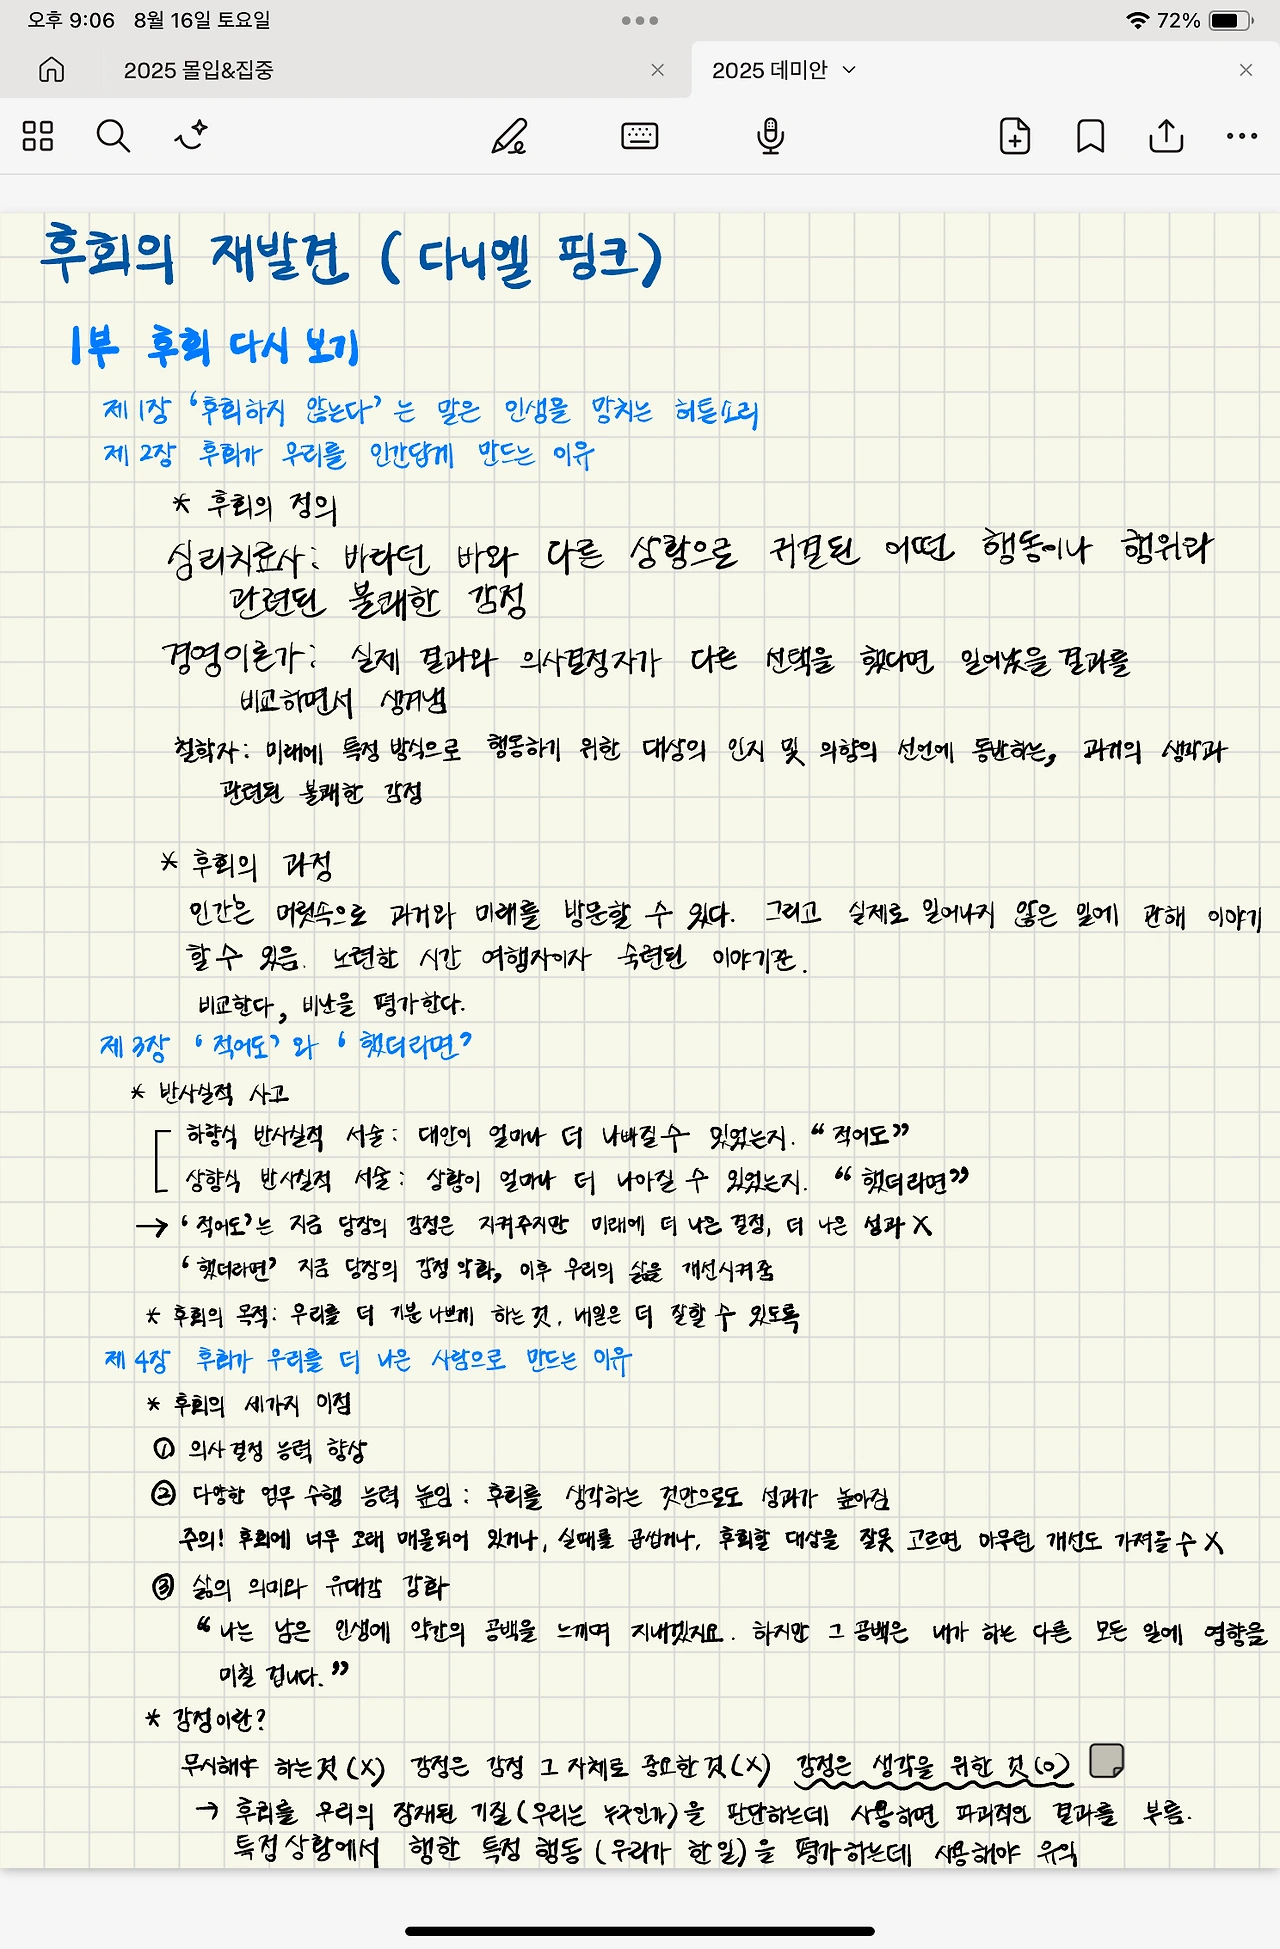 오후 9:06 8월 16일 토요일
72%
2025 몰입&집중
2025 데미안
후회의 재발견 (다니엘 핑크)
1부 후회 다시 보기
제 1장 ‘후회하지 않는다’는 말은 인생을 망치는 허튼소리
제 2장 후회가 우리를 인간답게 만드는 이유
* 후회의 정의
심리치료사: 바라던 바와 다른 상황으로 귀결된 어떤 행동이나 행위와
관련된 불쾌한 감정
경영이론가: 실제 결과와 의사결정자가 다른 선택을 했다면 일어났을 결과를
비교하면서 생겨냄
철학자: 미래에 특정 방식으로 행동하기 위한 대상의 인지 및 의향의 선언에 동반하는, 과거의 생각과
관련된 불쾌한 감정
* 후회의 과정
인간은 머릿속으로 과거와 미래를 방문할 수 있다. 그리고 실제로 일어나지 않은 일에 관해 이야기
할 수 있음. 노련한 시간 여행자이자 숙련된 이야기꾼.
비교한다, 비난을 평가한다.
제 3장 ‘적어도’와 ‘했더라면’
* 반사실적 사고
하향식 반사실적 서술: 대안이 얼마나 더 나빠질 수 있었는지. “적어도”
상향식 반사실적 서술: 상황이 얼마나 더 나아질 수 있었는지. “했더라면”
→ ‘적어도’는 지금 당장의 감정은 지켜주지만 미래에 더 나은 결정, 더 나은 성과 X
‘했더라면’ 지금 당장의 감정 악화, 이후 우리의 삶을 개선시켜줌
* 후회의 목적: 우리를 더 기분 나쁘게 하는 것. 내일은 더 잘할 수 있도록
제 4장 후회가 우리를 더 나은 사람으로 만드는 이유
* 후회의 세가지 이점
① 의사결정 능력 향상
② 다양한 업무 수행 능력 높임: 후회를 생각하는 것만으로도 성과가 높아짐
주의! 후회에 너무 오래 매몰되어 있거나, 실패를 곱씹거나, 후회할 대상을 잘못 고르면 아무런 개선도 가져올 수 X
③ 삶의 의미와 유대감 강화
“나는 남은 인생에 약간의 공백을 느끼며 지내겠지요. 하지만 그 공백은 내가 하는 다른 모든 일에 영향을
미칠 겁니다.”
* 감정이란?
무시해야 하는 것(X) 감정은 감정 그 자체로 중요한 것(X) 감정은 생각을 위한 것(O)
→ 후회를 우리의 잠재된 기질(우리는 누구인가)을 판단하는데 사용하면 파괴적인 결과를 부름.
특정상황에서 행한 특정 행동(우리가 한 일)을 평가하는데 사용해야 유익